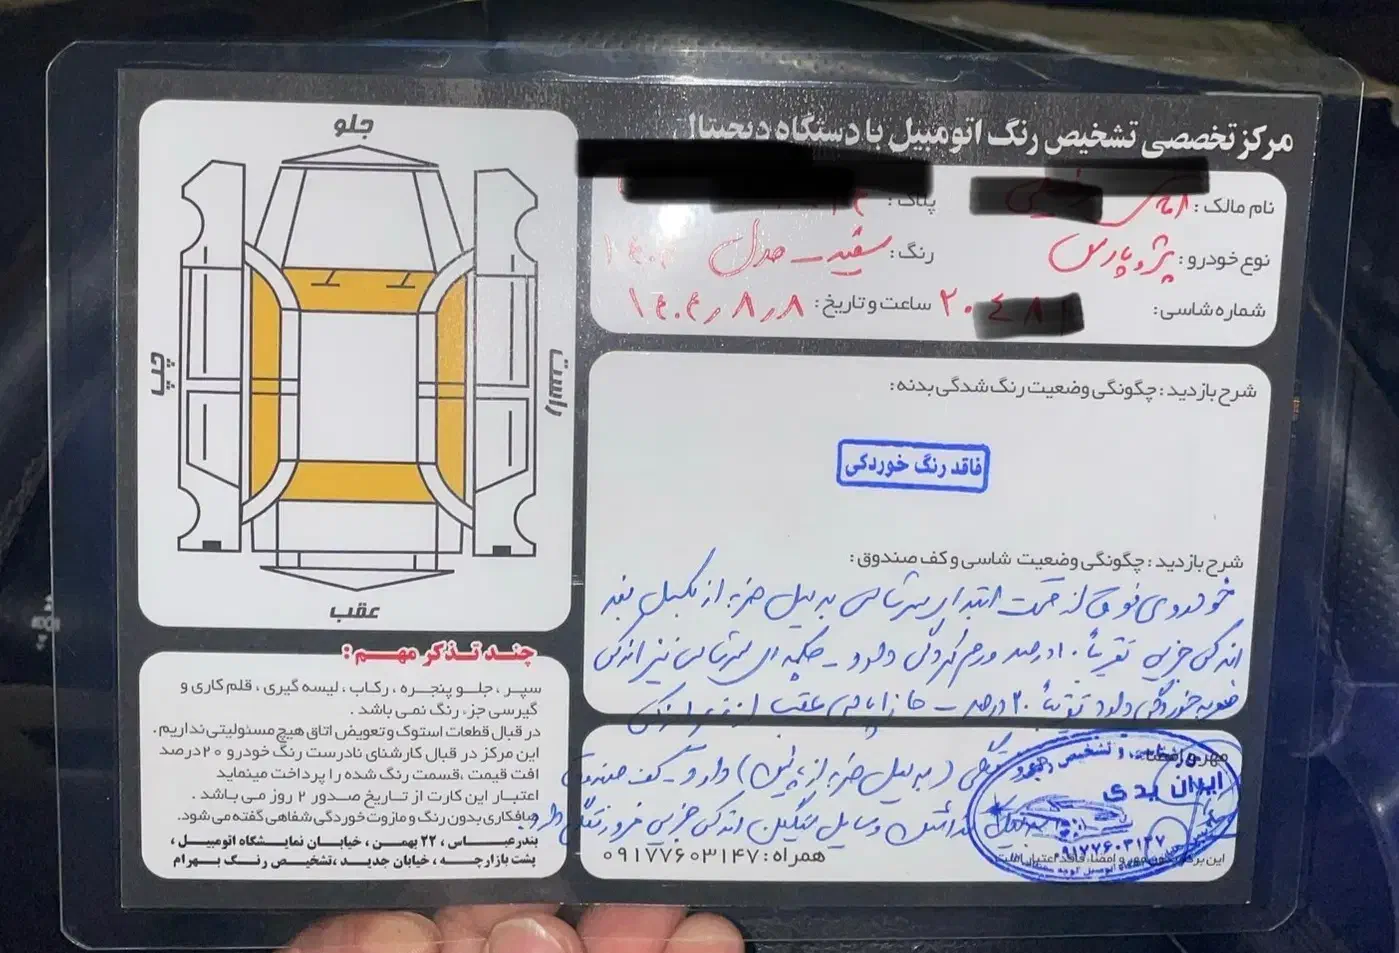 مرکز تخصصی تشخیص رنگ اتومبیل با دستگاه دیجیتال
نام مالک :
پلاک :
نوع خودرو : پژو پارس
رنگ : سفید ـ مدل
شماره شاسی :
ساعت و تاریخ : ۱۴۰۴٫۸٫۸
شرح بازدید : چگونگی وضعیت رنگ شدگی بدنه :
فاقد رنگ خوردگی
شرح بازدید : چگونگی وضعیت شاسی و کف صندوق :
خودروی فوق از قسمت ابتدای سرشاسی به دلیل ضربه از
اندکی جزیی تقریباً ۱۰ درصد ورم خوردگی دارد ـ سرشاسی نیز اندکی
ضربه خوردگی دارد تقریباً ۲۰ درصد ـ عقب از
(به دلیل ضربه از پایین) دارد ـ کف صندوق
به دلیل گذاشتن وسایل سنگین اندکی جزیی فرورفتگی دارد
مهر و امضاء
ایران یدی
۰۹۱۷۷۶۰۳۱۴۷
همراه : ۰۹۱۷۷۶۰۳۱۴۷
جلو
چپ
راست
عقب
چند تذکر مهم :
سپر ، جلو پنجره ، رکاب ، لیسه گیری ، قلم کاری و
گیرسی جزء رنگ نمی باشد .
در قبال قطعات استوک و تعویض اتاق هیچ مسئولیتی نداریم .
این مرکز در قبال کارشنای نادرست رنگ خودرو ۲۰ درصد
افت قیمت ،قسمت رنگ شده را پرداخت مینماید
اعتبار این کارت از تاریخ صدور ۲ روز می باشد .
صافکاری بدون رنگ و مازوت خوردگی شفاهی گفته می شود.
بندرعباس ، ۲۲ بهمن ، خیابان نمایشگاه اتومبیل ،
پشت بازارچه ، خیابان جدید ،تشخیص رنگ بهرام